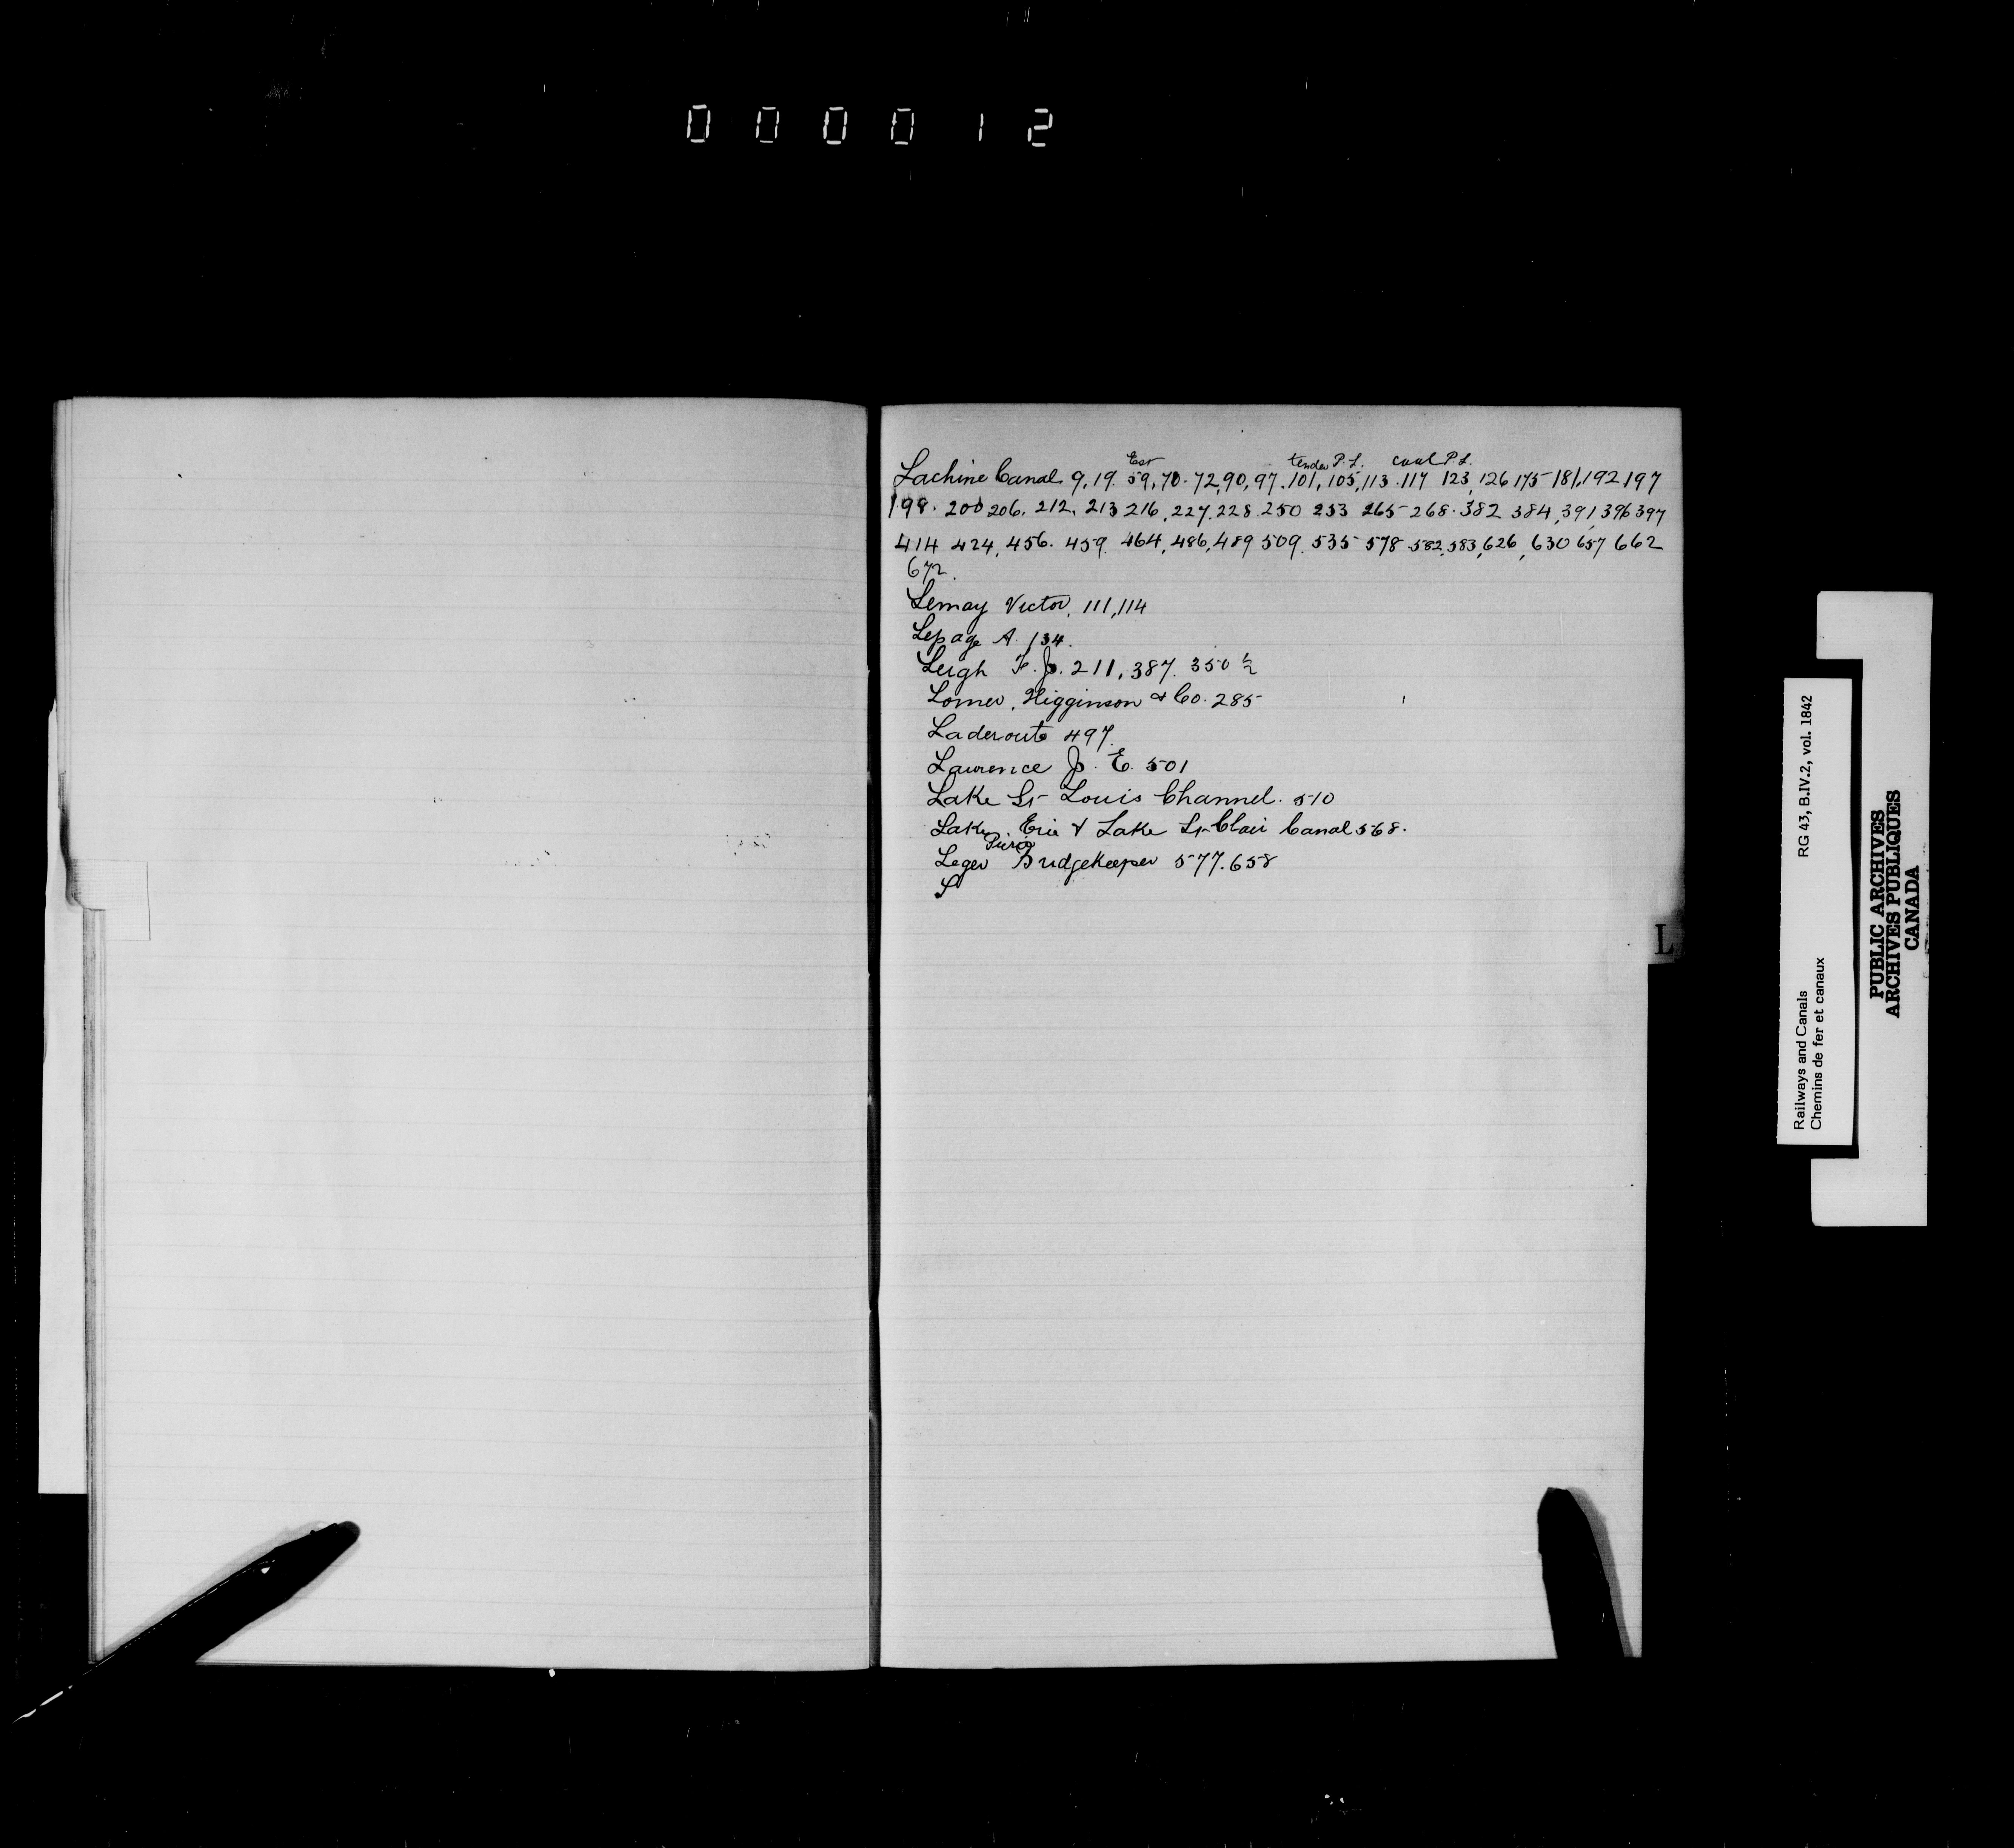 000012
Est tender P.L. coal P.L.
Lachine Canal 9, 19. 59, 70. 72, 90, 97. 101, 105, 113. 117 123, 126 175 181, 192 197
198. 200 206. 212. 213 216, 227. 228. 250 253 265 268. 382 384, 391, 396 397
414 424, 456. 459. 464, 486, 489 509. 535 578 582, 583, 626, 630 657 662
672.
Lemay Victor, 111, 114
Lepage A. 134.
Leigh F. J. 211, 387. 350 1/2
Lomer, Higginson & Co. 285
Laderoute 497.
Lawrence J. E. 501
Lake St Louis Channel. 510
Lake Erie & Lake St Clair Canal 568.
Leger Bridgekeeper 577. 658
L
L
Railways and Canals RG 43, B.IV.2, vol. 1842
Chemins de fer et canaux
PUBLIC ARCHIVES
ARCHIVES PUBLIQUES
CANADA